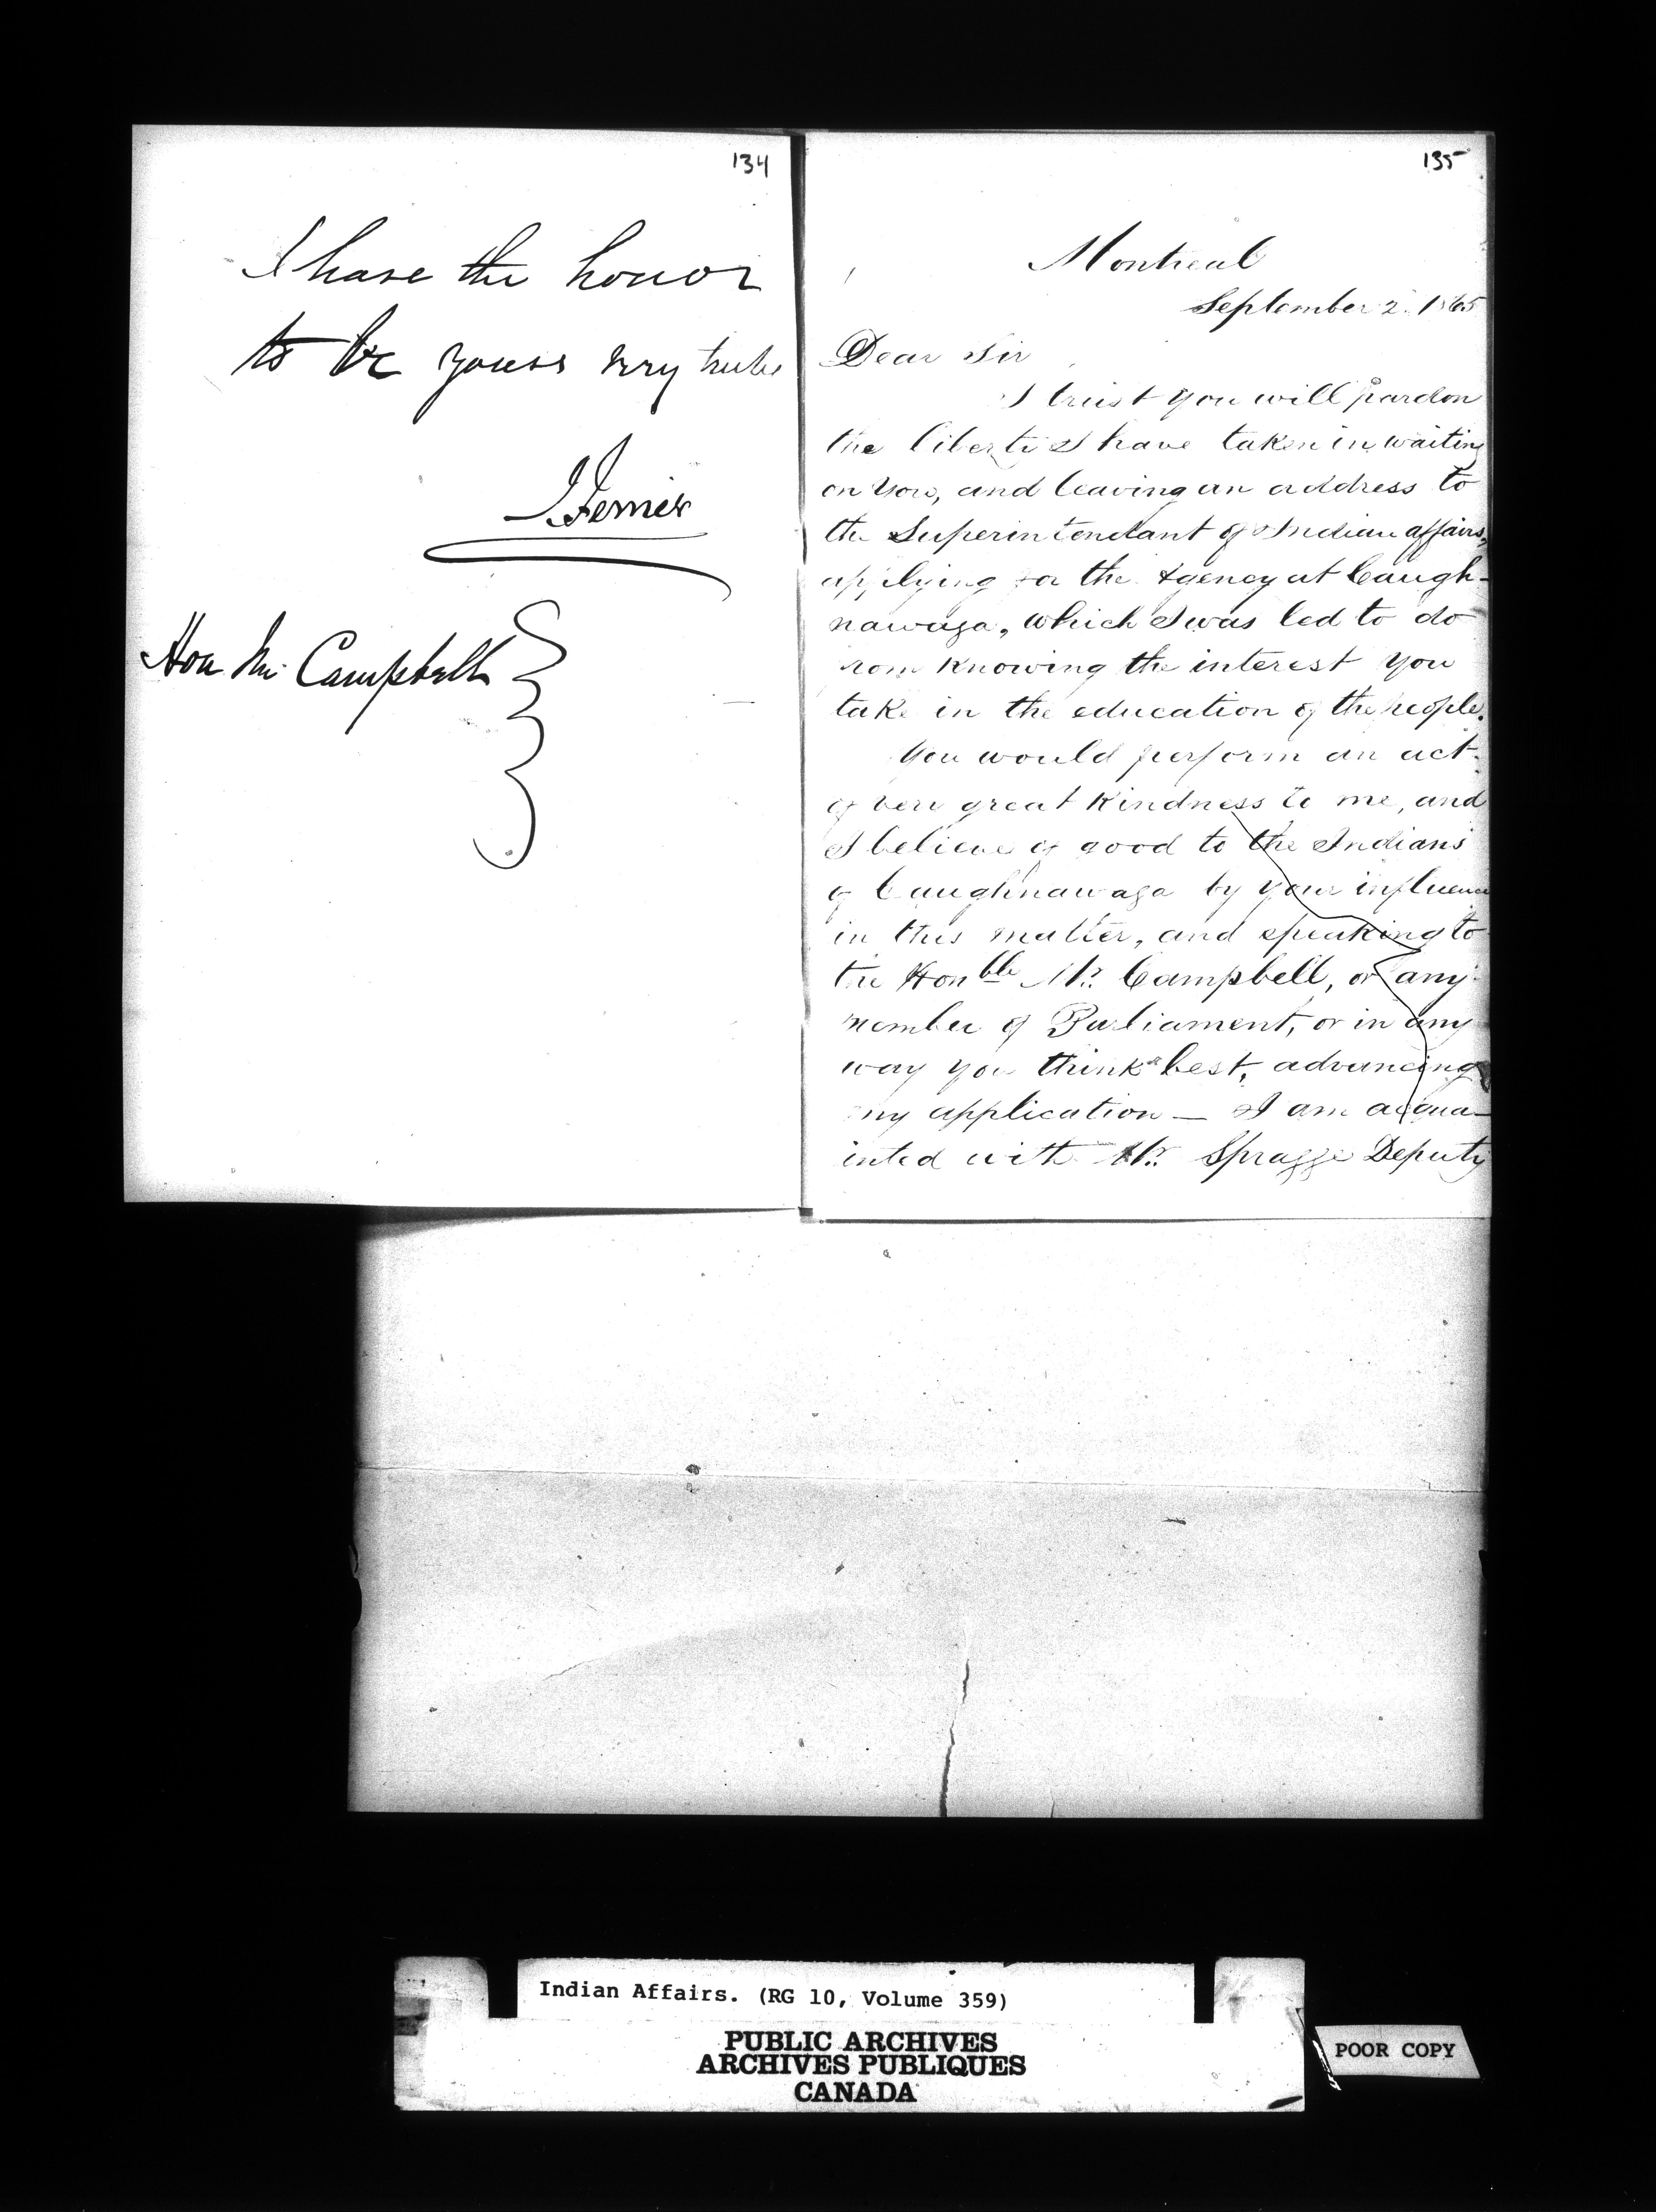 134
I have the honor
to be yours very truly
J. Ferrier
Hon Mr Campbell
135
Montreal
September 2. 1865
Dear Sir
I trust you will pardon
the liberty I have taken in waiting
on you, and leaving an address to
the Superintendant of Indian affairs,
applying for the Agency at Caugh-
nawaga, which I was led to do
from knowing the interest you
take in the education of the people.
You would perform an act
of very great kindness to me, and
I believe of good to the Indians
of Caughnawaga by your influence
in this matter, and speaking to
the Honble Mr. Campbell, or any
member of Parliament, or in any
way you think best, advancing
my application — I am acqua-
inted with Mr. Spragge Deputy
Indian Affairs. (RG 10, Volume 359)
PUBLIC ARCHIVES
ARCHIVES PUBLIQUES
CANADA
POOR COPY